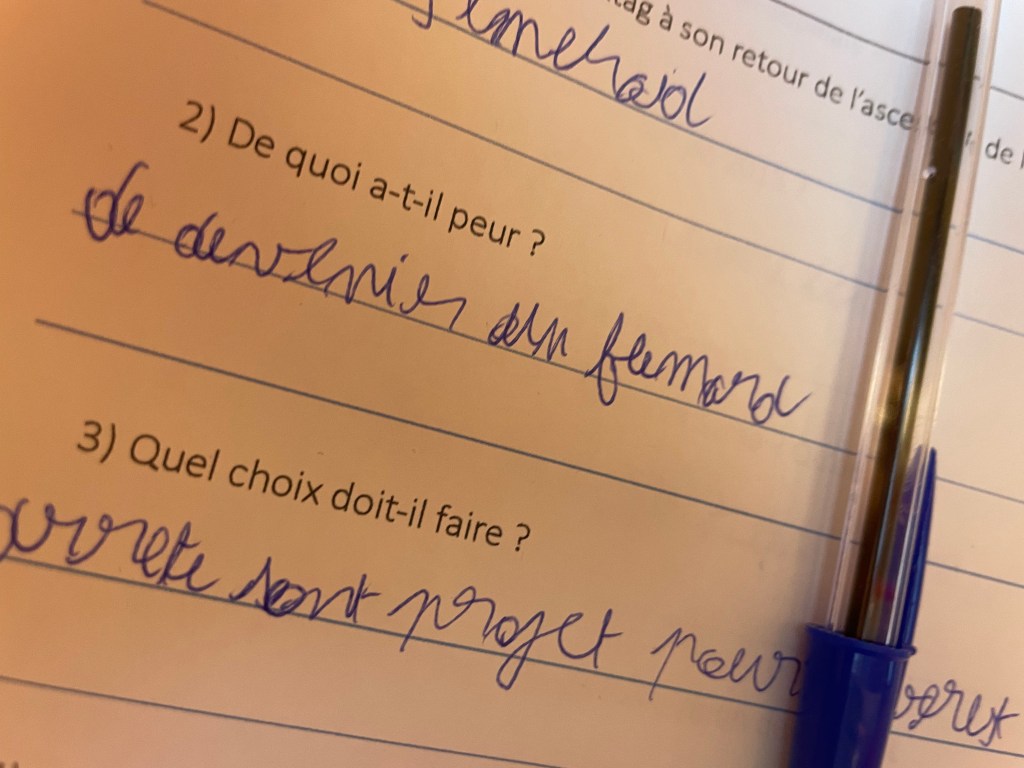 à son retour de l'asce de
2) De quoi a-t-il peur ?
de devenir un fumard
3) Quel choix doit-il faire ?
arrete sont projet pour